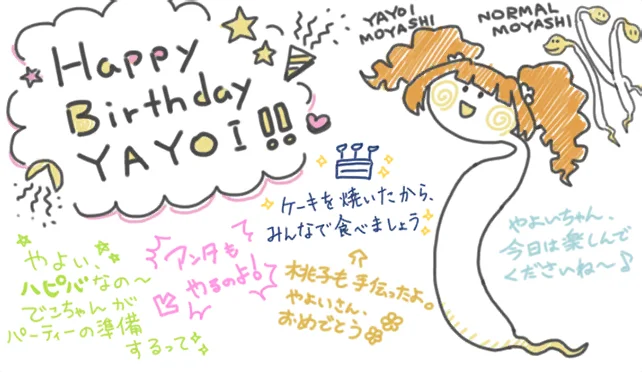 Happy
Birthday
YAYOI!!
YAYOI
MOYASHI
NORMAL
MOYASHI
ケーキを焼いたから、
みんなで食べましょう
やよいちゃん、
今日は楽しんで
くださいね〜♪
やよい
ハピバなの〜
でこちゃんが
パーティーの準備
するって
アンタも
やるのよ!
桃子も手伝ったよ。
やよいさん、
おめでとう